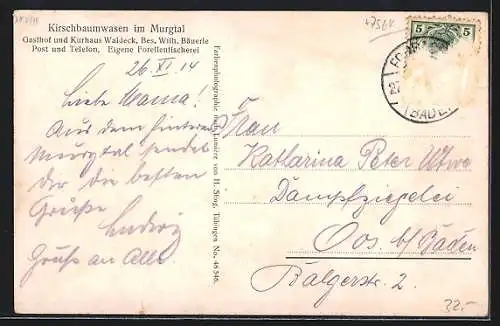 Kirschbaumwasen im Murgtal
Gasthof und Kurhaus Waldeck, Bes. Wilh. Bäuerle
Post und Telefon. Eigene Forellenfischerei
26. XI. 14
Liebe Mama!
Aus dem hinteren
Murgtal sendet
Dir die besten
Grüße
Ludwig
Gruß an Alle.
Farbenphotographie nach Lumière von H. Sting, Tübingen No. 46546.
5 5
BADEN
Frau
Katharina Peter Wtwe
Dampfziegelei
Oos b/ Baden
Balgerstr. 2.
32.-